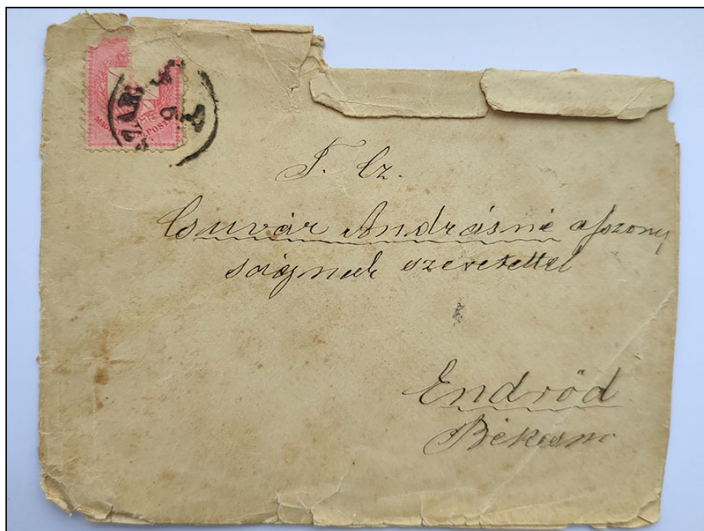 T. Cz.
Csuvár Andrásné aszony
ságnak szeretettel
Endrőd
Békesm